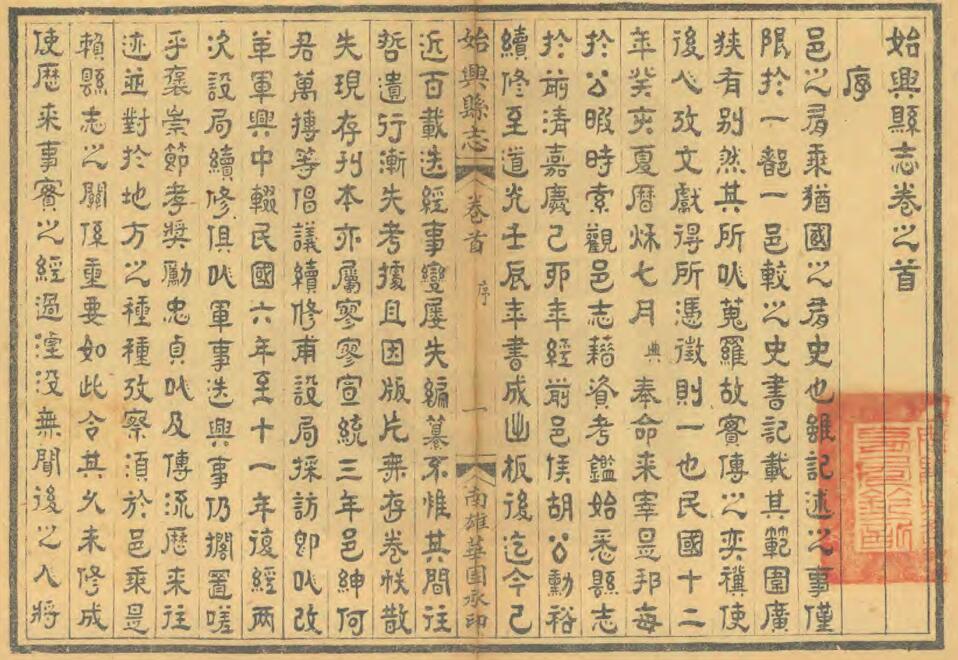 始興縣志卷之首
序
邑之有乘猶國之有史也雖記述之事僅
限於一部一邑較之史書記載其範圍廣
狹有別然其所以蒐羅故實傳之奕禩使
後人攷文獻得所憑徵則一也民國十二
年癸亥夏曆秌七月典奉命來宰是邦每
於公暇時索觀邑志藉資考鑑始悉縣志
於前清嘉慶己卯年經前邑侯胡公勳裕
續修至道光壬辰年書成出板後迄今已
始興縣志 卷首 序 一 南雄華國承印
近百載迭經事變屢失編纂不惟其間往
哲遺行漸失考據且因版片無存卷帙散
失現存刊本亦屬寥寥宣統三年邑紳何
君萬摶等倡議續修甫設局採訪卽以改
革軍興中輟民國六年至十一年復經兩
次設局續修俱以軍事迭興事仍擱置嗟
乎褒崇節孝獎勵忠貞以及傳流歷來往
迹並對於地方之種種攷察須於邑乘是
賴縣志之關係重要如此令其久未修成
使歷來事實之經過湮没無聞後之人將